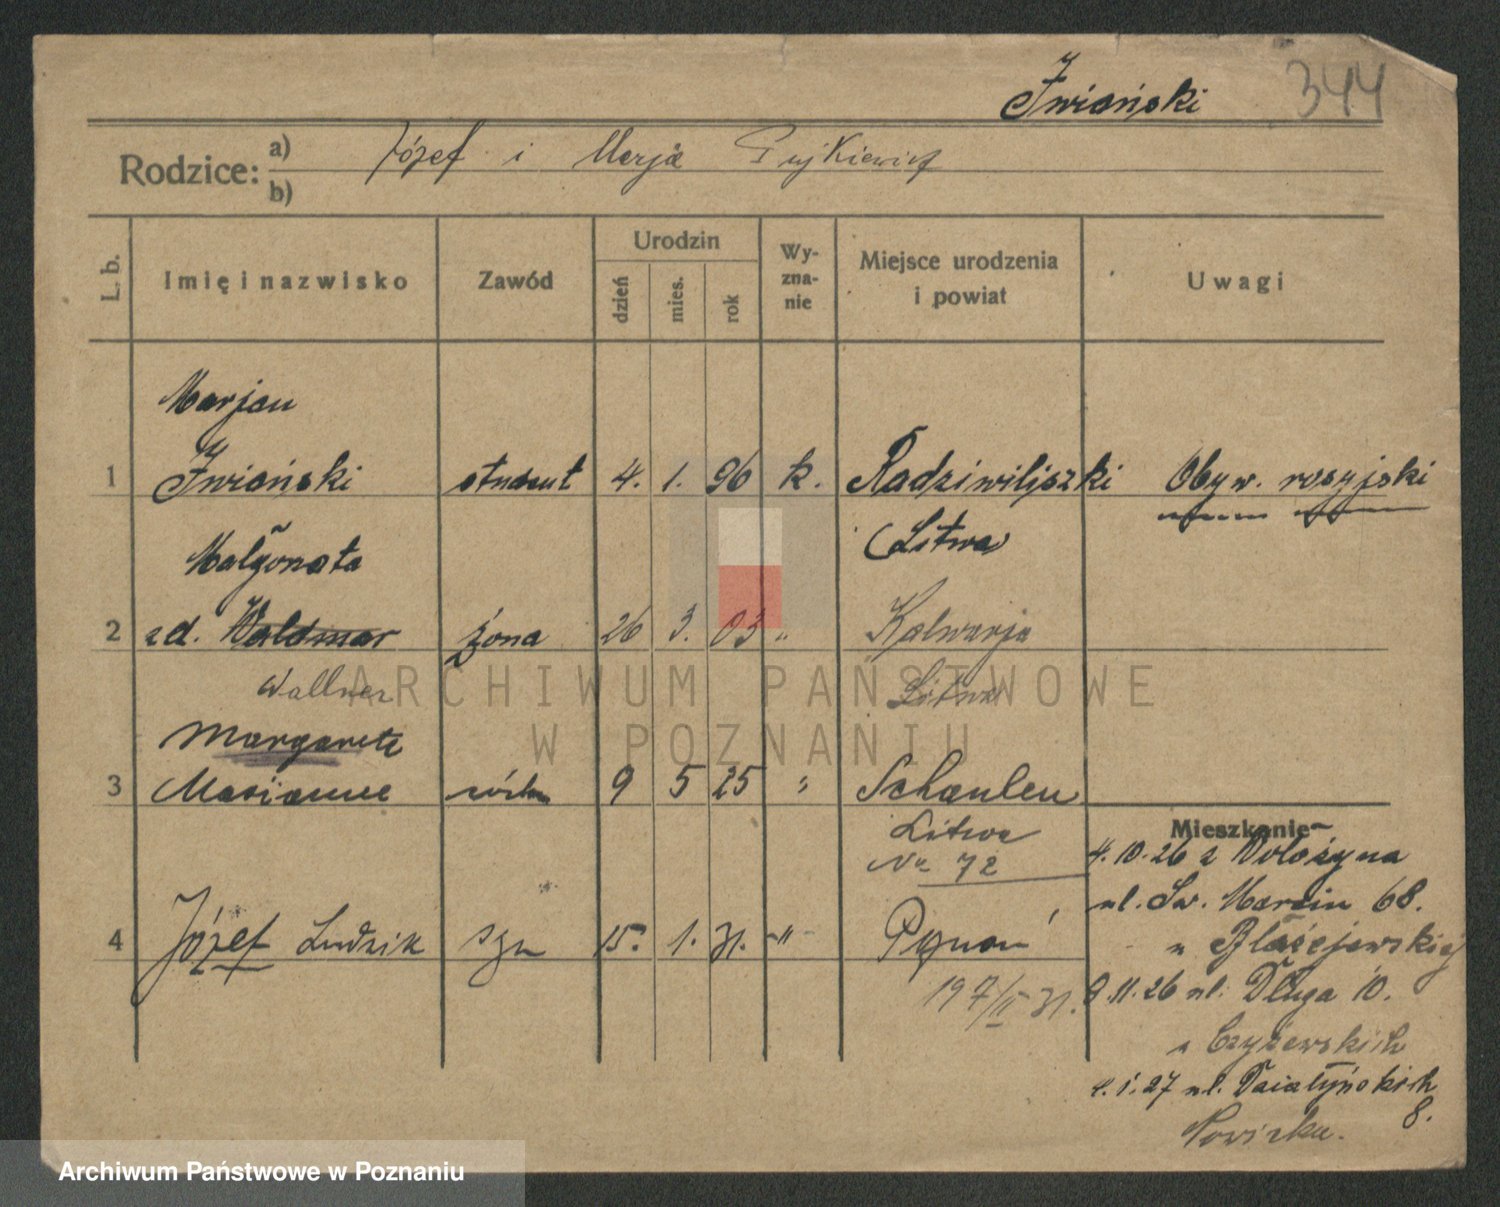 Iwiański 344
Rodzice: a) Józef i Marja
b)
L. b. Imię i nazwisko Zawód Urodzin dzień mies. rok Wy-zna-nie Miejsce urodzenia i powiat Uwagi
Marjan
1 Iwiański student 4. 1. 96 k. Radziwiliszki Obyw. rosyjski
(Litwa)
Małgorzata
2 zd. Waldmar żona 26 3. 03 " Kalwarja
Wallner Litwa
Margarete
3 Marianne córka 9 5 25 " Schaulen
Litwa
Nr 72
Mieszkanie
4.10.26 z Wołożyna
ul. Św. Marcin 68.
4 Józef Ludzik syn 15. 1. 31. -"- Poznań
u Błażejewskiej
197/II 31.
9.11.26 ul. Długa 10.
u Czyżewskich
1.27 ul. Działyńskich
8.
ARCHIWUM PAŃSTWOWE
W POZNANIU
Archiwum Państwowe w Poznaniu